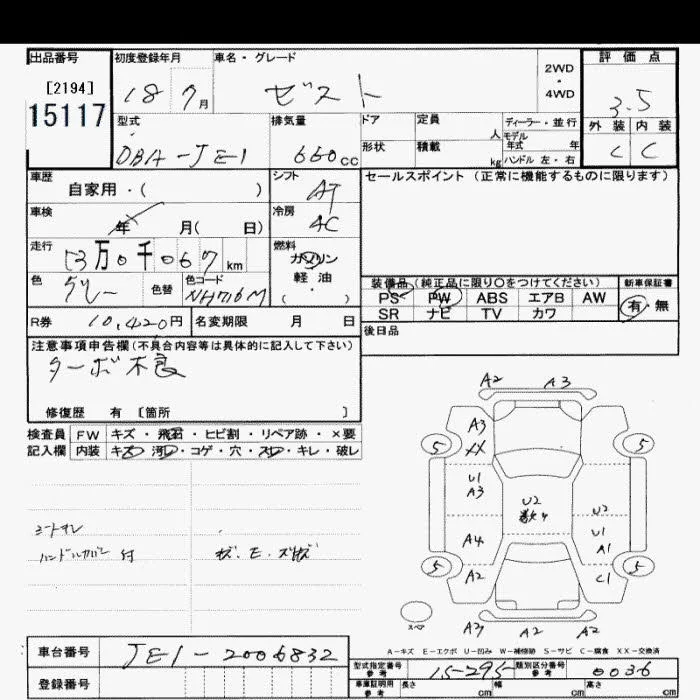 出品番号
[2194]
15117
初度登録年月
18 7 月
車名・グレード
ゼスト
2WD
・
4WD
評価点
3.5
外装 内装
C C
型式
DBA-JE1
排気量
660 cc
ドア
定員 人
形状
積載 kg
ディーラー・並行
モデル
年式 年
ハンドル 左・右
車歴
自家用・( )
シフト
AT
車検
年 月( 日)
冷房
AC
走行
13万0千067 km
燃料
ガソリン
軽油
( ・ )
色
グレー
色替
色コード
NH716M
R券
10,420円
名変期限 月 日
セールスポイント(正常に機能するものに限ります)
装備品(純正品に限り〇をつけてください)
PS PW ABS エアB AW
SR ナビ TV カワ
新車保証書
有・無
後日品
注意事項申告欄(不具合内容等は具体的に記入して下さい)
ターボ不良
修復歴 有 〔箇所 〕
検査員
記入欄
FW キズ・飛石・ヒビ割・リペア跡・×要
内装 キズ・汚レ・コゲ・穴・スレ・キレ・破レ
シートスレ
ハンドルカバー付
キズ.E.
A2 A3
A3
XX
U1
A3
A4
A2
U2
数ヶ
U2
U1
A1
C1
5 5
5 5
スペア
A3 A2 A2
A-キズ E-エクボ U-凹み W-補修跡 S-サビ C-腐食 XX-交換済
車台番号
JE1-2006832
登録番号
型式指定番号
参考
15295
類別区分番号
参考
0036
車庫証明用
参考
長さ cm
幅 cm
高さ cm